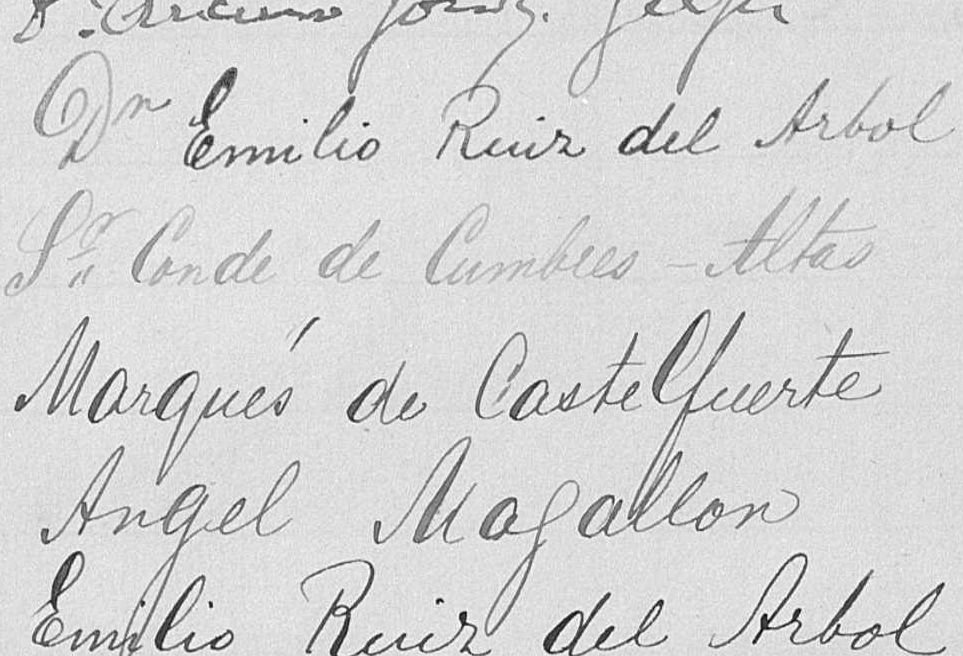 Dn Emilio Ruiz del Arbol
Sr. Conde de Cumbres - Altas
Marqués de Castelfuerte
Angel Magallon
Emilio Ruiz del Arbol